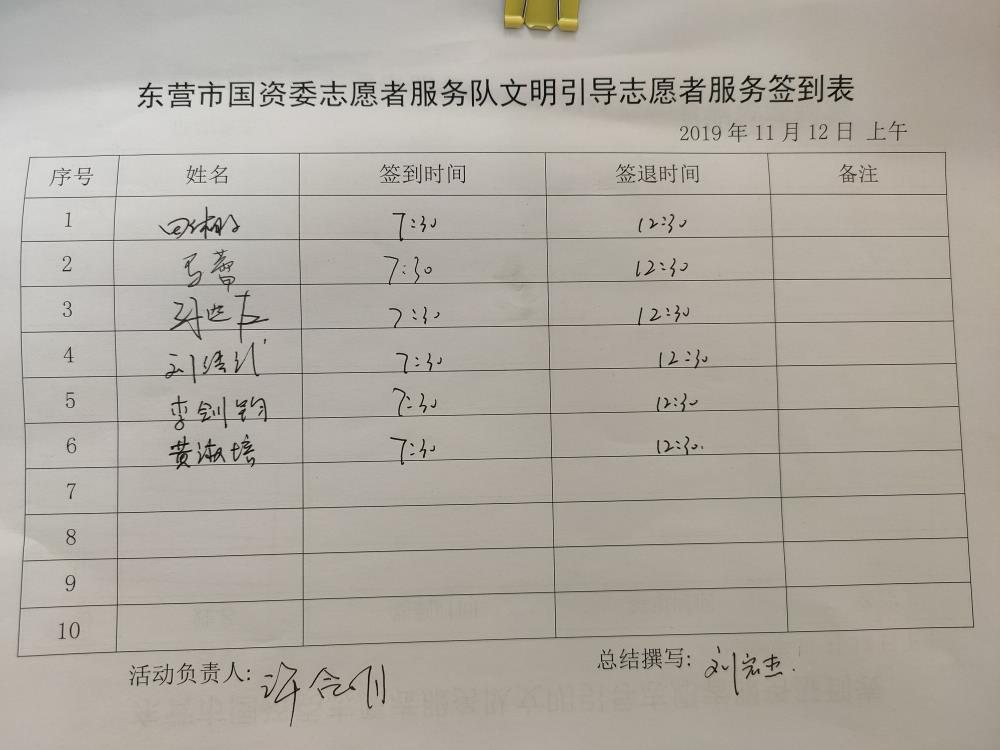 东营市国资委志愿者服务队文明引导志愿者服务签到表
2019年11月12日 上午
序号 姓名 签到时间 签退时间 备注
1 7:30 12:30
2 马蕾 7:30 12:30
3 7:30 12:30
4 刘 7:30 12:30
5 李剑钧 7:30 12:30
6 黄淑培 7:30 12:30.
7
8
9
10
活动负责人: 许合刚
总结撰写: 刘宏杰.